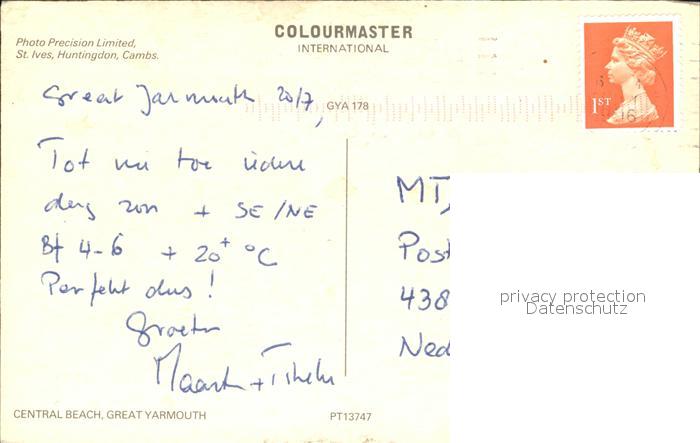 COLOURMASTER
INTERNATIONAL
Photo Precision Limited,
St. Ives, Huntingdon, Cambs.
1ST
16
Great Yarmouth 20/7,
GYA 178
Tot nu toe iedere
dag zon + SE/NE
Bf 4-6 + 20+ °C
Perfekt dus!
Groeten
Maarten +
MT,
Post
438
Ned
privacy protection
Datenschutz
CENTRAL BEACH, GREAT YARMOUTH
PT13747